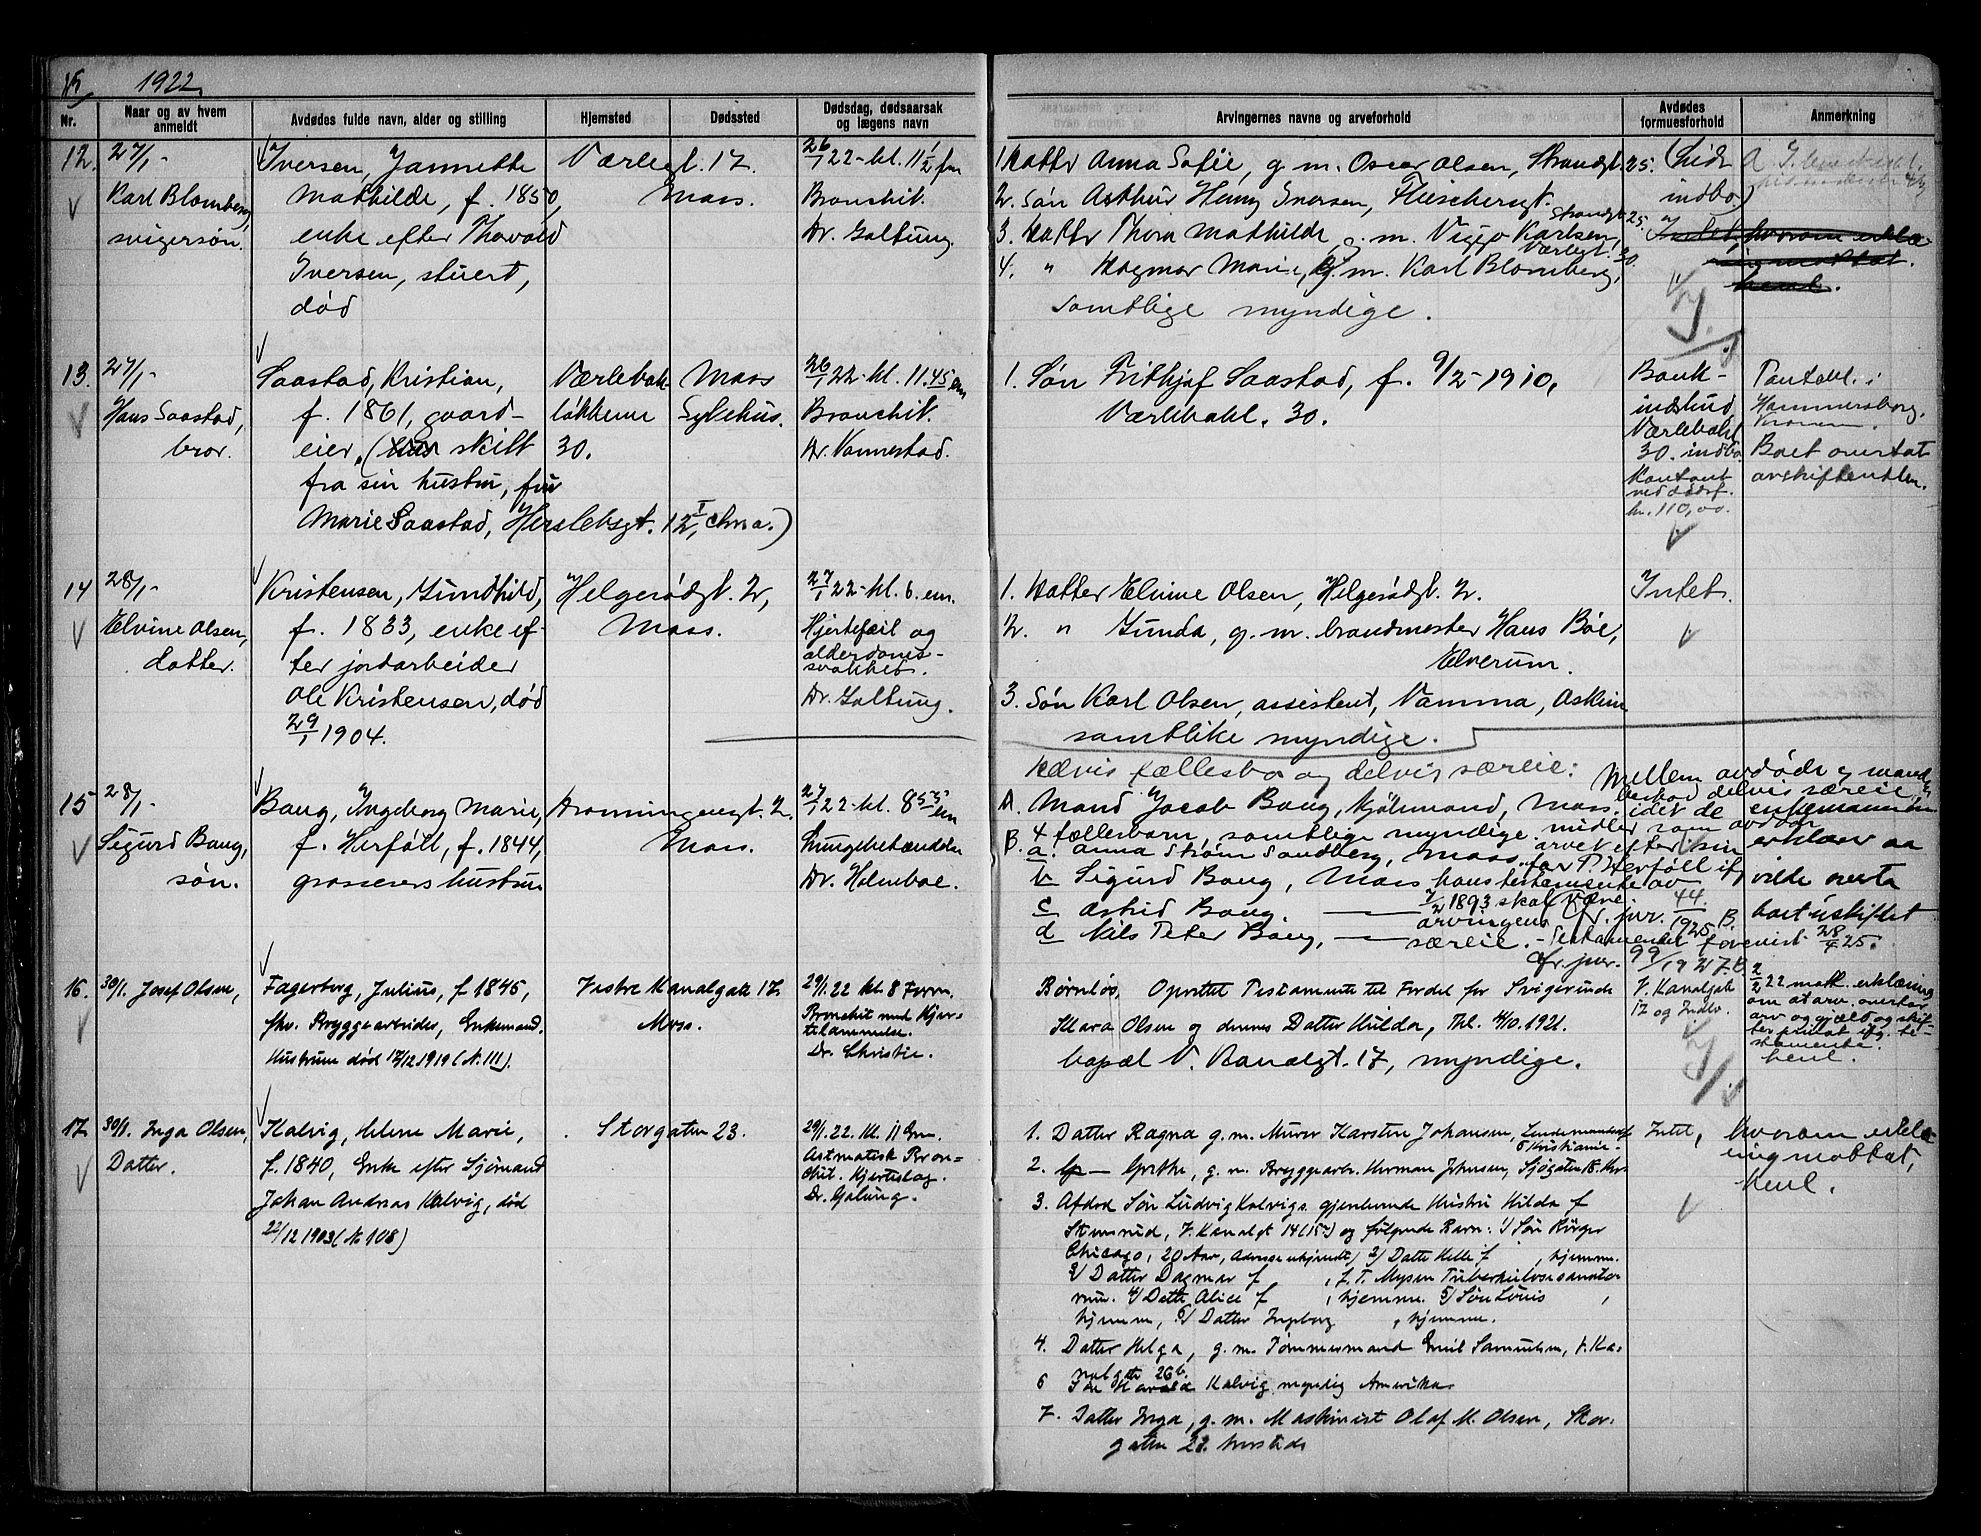 1922.
Nr.
Naar og av hvem anmeldt
Avdødes fulde navn, alder og stilling
Hjemsted
Dødssted
Dødsdag, dødsaarsak og lægens navn
Arvingernes navne og arveforhold
Avdødes formuesforhold
Anmerkning
12. 27/1-
Karl Blomberg,
svigersøn.
Iversen, Jannette
Mathilde, f. 1850,
enke efter Thorvald
Iversen, stuert,
død
Værlegt. 17.
Moss.
26/1 22 - kl. 11 1/2 fm
Bronchit.
Dr. Galtung.
1. Datter Anna Sofie, g. m. Oscar Olsen, Strandgt. 25.
2. Søn Arthur Henry Iversen, Fleischersgt.
3. Datter Thora Mathilde, g. m. Viggo Karlsen, Strandgt 25.
4. " Dagmar Marie, g. m. Karl Blomberg, Værlegt. 30.
samtlige myndige.
indbo)
Intet, hvorom erklæ-
ring mottat.
13. 27/1-
Hans Saastad,
bror.
Saastad, Kristian,
f. 1861, gaard-
eier. ( skilt
fra sin hustru, fru
Marie Saastad, Herslebsgt. 12, I Chra.)
Værlebak-
løkkene
30.
Moss
Sykehus.
26/1 22 - kl. 11.45 em
Bronchit.
Dr. Vannestad.
1. Søn Frithjof Saastad, f. 9/2-1910,
Værlebakl. 30.
Bank-
indskud
Værlebakl
30. indbo.
Kontant
ved dødsf.
kr. 110,00.
Pantobl. i
Hammersborg.
Boet overtat
av skifteretten.
14 28/1-
Elvine Olsen,
datter.
Kristensen, Gundhild,
f. 1833, enke ef-
ter jordarbeider
Ole Kristensen, død
29/1 1904.
Helgerødgt. 2,
Moss.
27/1 22 - kl. 6. em.
Hjertefeil og
alderdoms-
svakhet.
Dr. Galtung.
1. Datter Elvine Olsen, Helgerødgt. 2.
2. " Gunda, g. m. brandmester Hans Bøe,
Elverum.
3. Søn Karl Olsen, assistent, Vamma, Askim
samtlike myndige.
Intet.
15 28/1-
Sigurd Bang,
søn.
Bang, Ingeborg Marie,
f. Herføll, f. 1844,
grosserers hustru
Dronningensgt. 2.
Moss.
27/1 22 - kl. 8 55 em
Lungebetændelse
Dr. Holmboe.
Delvis fællesbo og delvis særeie:
A. Mand Jacob Bang, kjøbmand, Moss.
B. 4 fællesbarn, samtlige myndige.
a. Anna Strøm Sandberg, Moss.
b Sigurd Bang, Moss
c Astrid Bang.
d Nils Peter Bang,
Mellem avdøde og mand
bestod delvis særeie,
idet de
midler som avdøde
arvet efter sin
far P. Herføll ifg
hans testamente av
7/2 1893 skal være
arvingens
særeie. - Testamentet forevist 28/4 25.
Cfr. jur. 44/1925 B.
Cfr. jur. 99/1927. B.
enkemannen
erklærer aa
ville overta
boet uskiftet
16. 30/1. Josef Olsen,
Fagerberg, Julius, f. 1845,
fhv. Bryggearbeider, Enkemand.
Hustruen død 17/12 1919 (N. 111).
Vestre Kanalgate 17.
Moss.
29/1. 22 kl. 8 Form.
Bronchit med Hjer-
telammelse.
Dr. Christie.
Barnløs, Oprettet Testamente til Fordel for Svigerinde
Klara Olsen og dennes Datter Hulda, Thl. 4/10. 1921.
bopæl V. Kanalgt. 17, myndige.
V. Kanalgate
17 og Indbo.
2/2 22 mott. erklæring
om at arv. overtar
arv og gjæld og skif-
ter privat ifg. te-
stamente.
17. 30/1. Inga Olsen,
Datter.
Kalvig, Helene Marie,
f. 1840, Enke efter Sjømand
Johan Andreas Kalvig, død
22/12 1903 (N. 108)
Storgaten 23.
29/1. 22. kl. 11 Em.
Astmatisk Bron-
chit. Hjerteslag.
Dr. Galtung.
1. Datter Ragna g. m. Murer Karsten Johansen, Kristiania.
2. - Grethe, g. m. Bryggearb. Herman Johnsen, Sjøgaten 18.
3. Afdød Søn Ludvig Kalvigs gjenlevende Hustru Hilda f
Stensrud, V. Kanalgt 14 (15?) og følgende Barn: 1/ Søn Birger
Chicago, 20 Aar, 2/ Datter Helle f , hjemme.
3/ Datter Dagmar f , f. T. Mysen Tuberkulosesanato-
rium. 4/ Datter Alice f , hjemme. 5/ Søn Louis ,
hjemme, 6/ Datter Ingeborg , hjemme.
4. Datter Helga, g. m. Tømmermand Emil Samuelsen, V. Ka-
nalgate 26 b.
6 Søn Harald Kalvig myndig Amerika
7. Datter Inga, g. m. Maskinist Olaf M. Olsen, Stor-
gaten 23. hersteds
Intet, hvorom erklæ-
ring mottat,